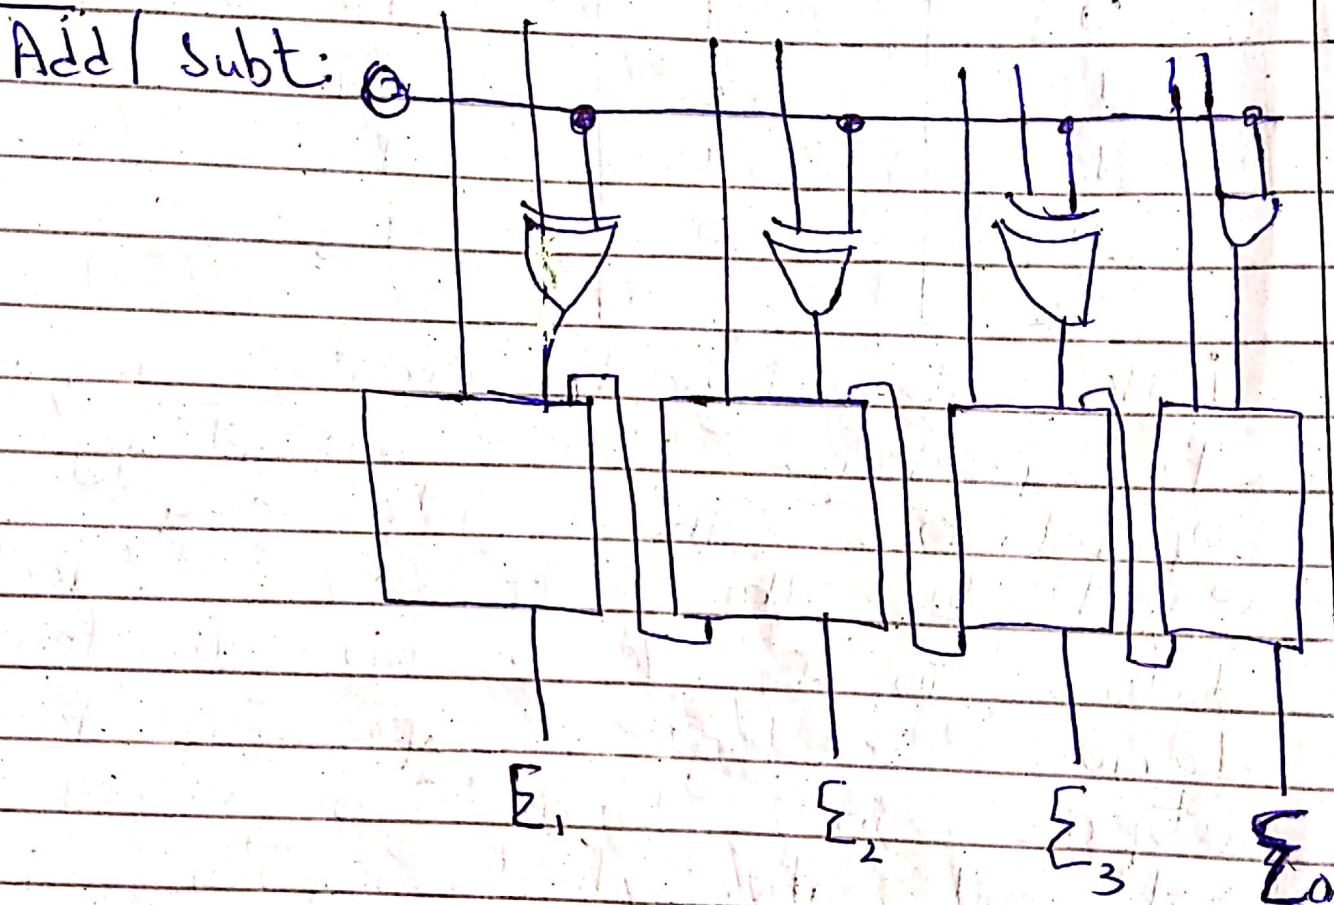 Add / Subt:
Σ₁ Σ₂ Σ₃ Σ₀